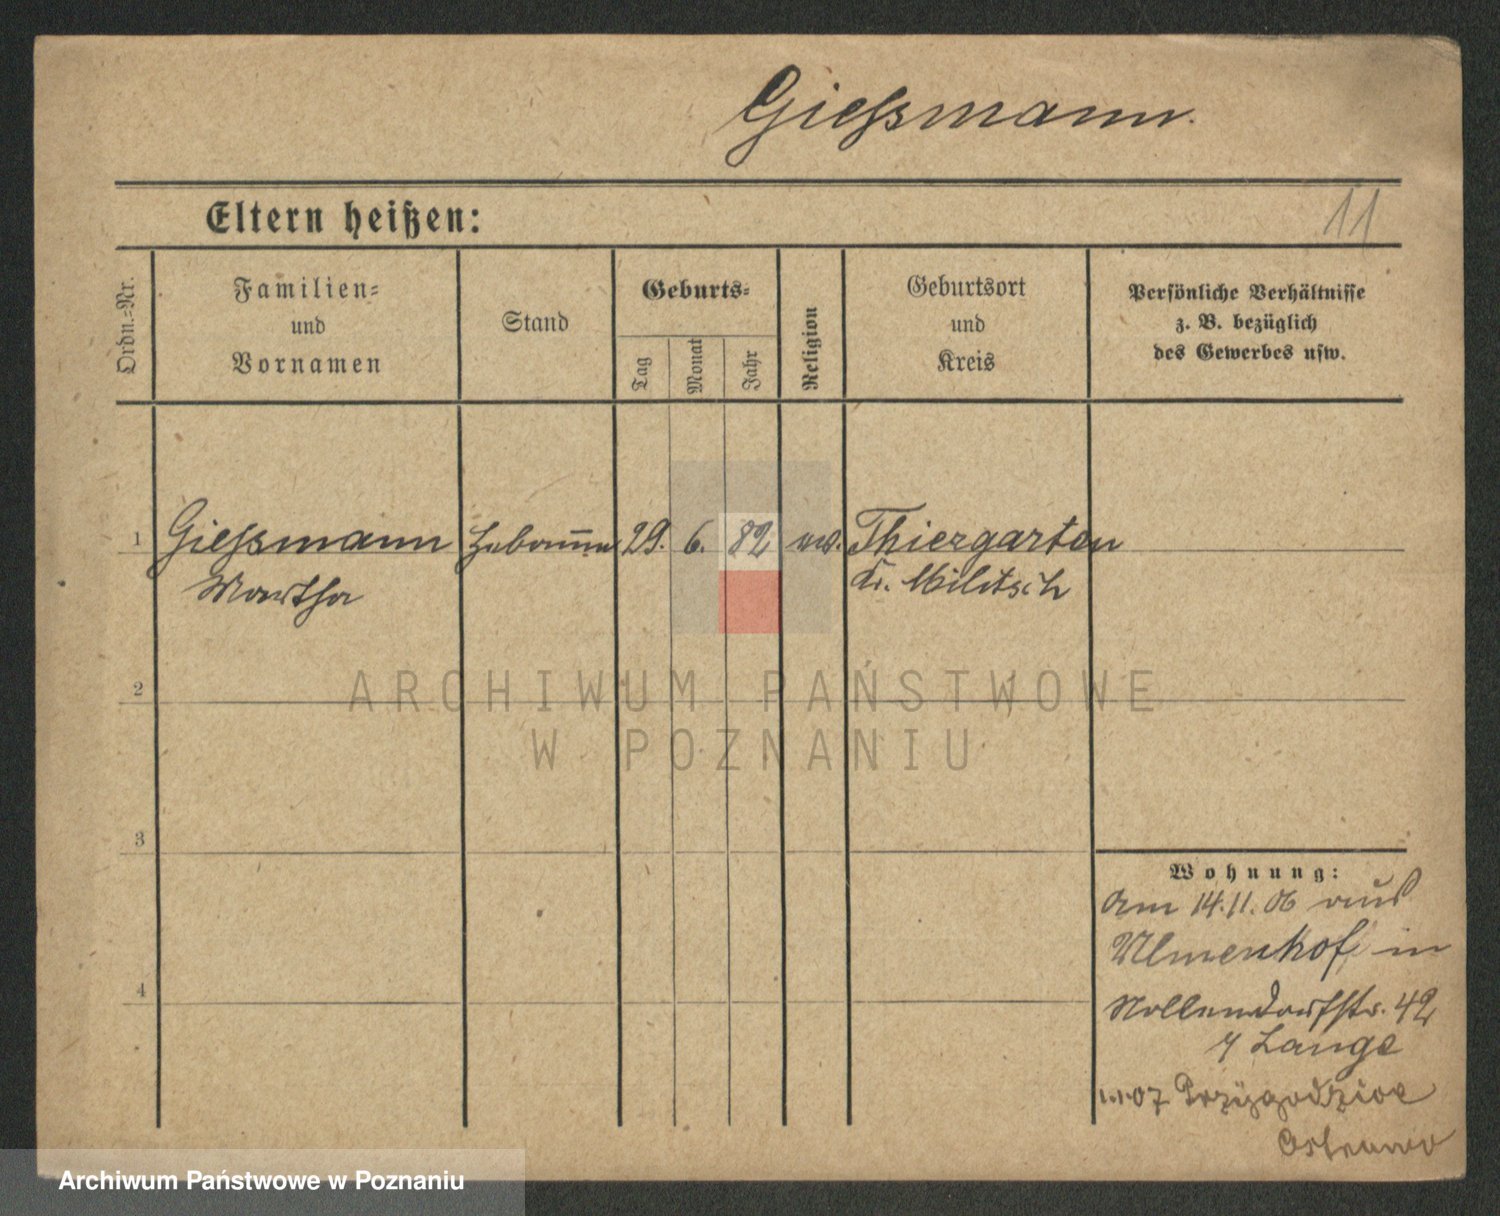 Gießmann.
Eltern heißen:
11
Ordn.=Nr.
Familien=
und
Vornamen
Stand
Geburts=
Tag
Monat
Jahr
Religion
Geburtsort
und
Kreis
Persönliche Verhältnisse
z. B. bezüglich
des Gewerbes usw.
1 Gießmann Hebamme 29. 6. 82 ev. Thiergarten
Martha Kr. Militsch
2
ARCHIWUM PAŃSTWOWE
W POZNANIU
3
Wohnung:
Am 14.11.06 aus
Ulmenhof in
Nollendorfstr. 42
Lange
1.1.07 Przygodzice
Ostrowo
4
Archiwum Państwowe w Poznaniu